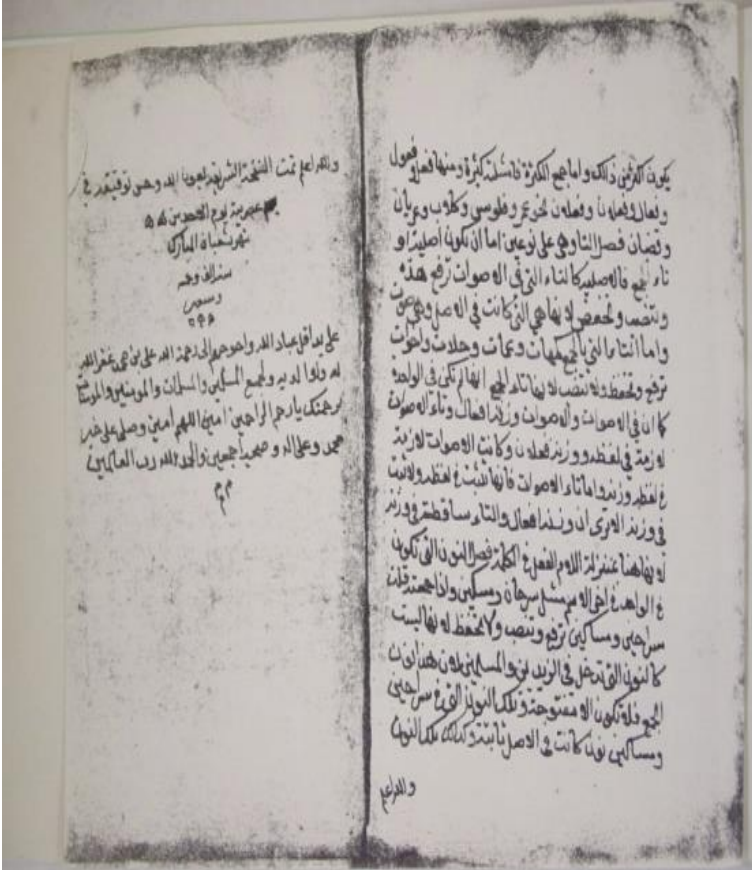 يكون اكثر من ذلك واما جمع الكثرة فامثلة كثيرة ومنها فعل وفعول
وفعال وفعلان وفعلان نحو عمر وفلوس وكلاب وعريان
وقضان فصل التا وهي على نوعين اما ان تكون اصلية او
تاء الجمع فالاصلية كالتاء التي في الاصوات ترفع هذه
وتنصب وتخفض لانها هي التي كانت في الاصل وهي صوت
واما التاء التي بالجمع كمهات وعمات وخلات واخوات
ترفع وتخفظ ولا تنصب لانها تاء الجمع انها لم تكن في الواحدة
كما ان في الاصوات والاصوات وزنه افعال وتاء الاصوات
لازمة في لفظه ووزنه فعلان وكانت الاصوات لازمة
في لفظ وزنه واما تاء الاصوات فانها تثبت في لفظه ولا تثبت
في وزنه الا ترى ان وزنه افعال والتاء ساقطة في وزنه
لانها هنا بمنزلة اللام الفعل في الكلمة فصل النون التي تكون
في الواحد في اخر الاسم مثل سرحان ومسكين واذا جمعته قلت
سراحين ومساكين ترفع وتنصب ولا تخفظ لانها ليست
كالنون التي تدخل في الزيدين والمسلمين لان هذا نون
الجمع فلا تكون الا مفتوحة وتلك النون التي في سراحين
ومساكين نون كانت في الاصل ثابتة وكذلك تلك النون
والله اعلم
والله اعلم تمت النسخة الشريفة بعون الله وحسن توفيقه في
يوم الاحد من
شهر شعبان المبارك
سنة الف
وتسعين
على يد اقل عباد الله واحوجهم الى رحمة الله علي بن غفر الله
له ولوالديه ولجميع المسلمين والمسلمات والمومنين والمومنات
برحمتك يا ارحم الراحمين امين اللهم امين وصلى على خير
محمد وعلى اله وصحبه اجمعين والحمد لله رب العالمين
م م